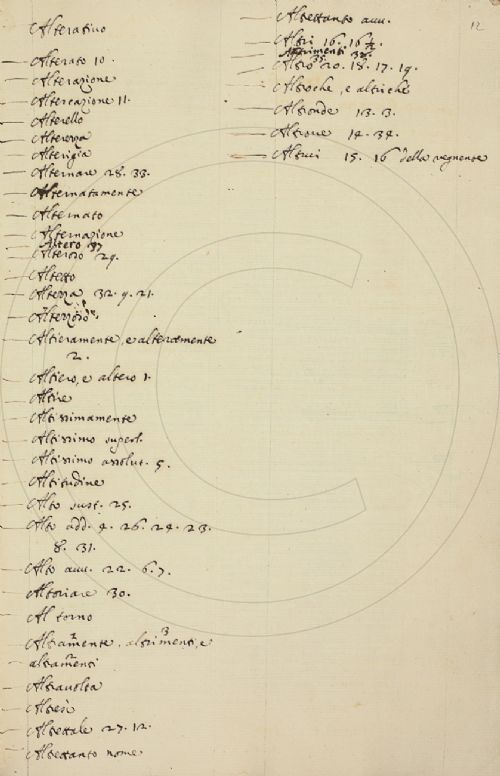 Alterativo
Alterato 10.
Alterazione
Altercazione 11.
Alterello
Alterezza
Alterigia
Alternare 28. 33.
Alternatamente
Alternato
Alternazione
Altero 37
29.
Altetto
Altezza 32. 9. 21.
Altieramente, e alteramente
2.
Altiero, e altero 1.
Altire
Altissimamente
Altissimo superl.
Altissimo assolut. 5.
Altitudine
Alto sust. 25.
Alto add. 4. 26. 24. 23.
8. 31.
Alto avv. 22. 6. 7.
Altoriare 30.
Al torno
Altramente, altrimenti, e
altramenti
Altravolta
Altresì
Altrettale 27. 12.
Altrettanto nome
Altrettanto avv.
12
Altri 16. 16
Altrimenti 32.
Altro 20. 18. 17. 19.
35.
Altroche, e altriché
Altronde 13. 3.
Altrove 14. 34.
Altrui 15. 16 della vegnente